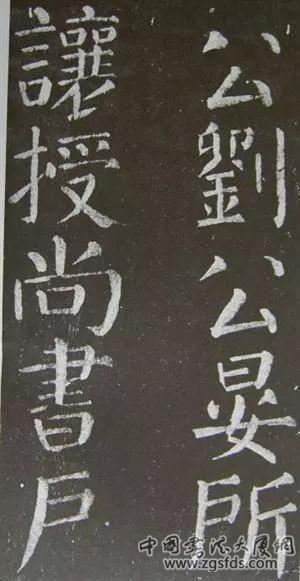 公劉公晏所
讓授尚書戶
中国书法大展网
www.zgsfds.com